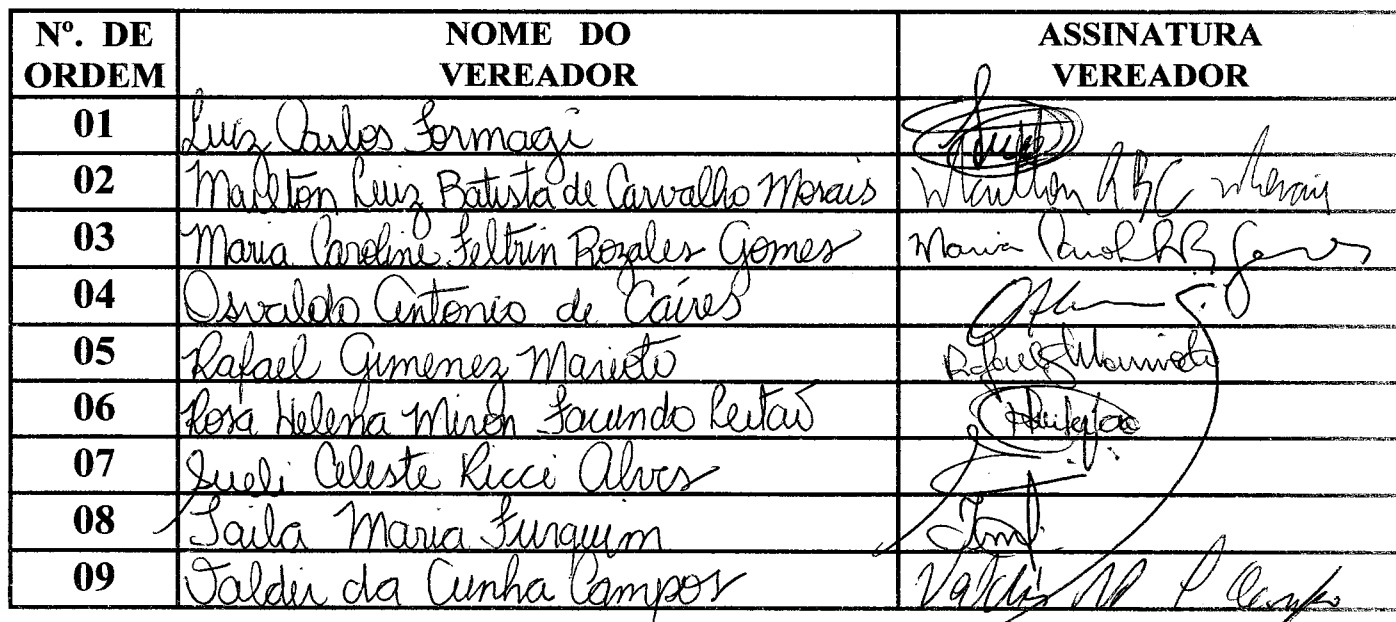 Nº. DE ORDEM NOME DO VEREADOR ASSINATURA VEREADOR
01 Luiz Carlos Formagi
02 Marlton Luiz Batista de Carvalho Morais
03 Maria Caroline Feltrin Rozales Gomes Maria
04 Osvaldo Antonio de Caires
05 Rafael Gimenez Marioto Rafael
06 Rosa Helena Miron Facundo Leitão
07 Sueli Celeste Ricci Alves
08 Taila Maria Furquim
09 Valdei da Cunha Campos